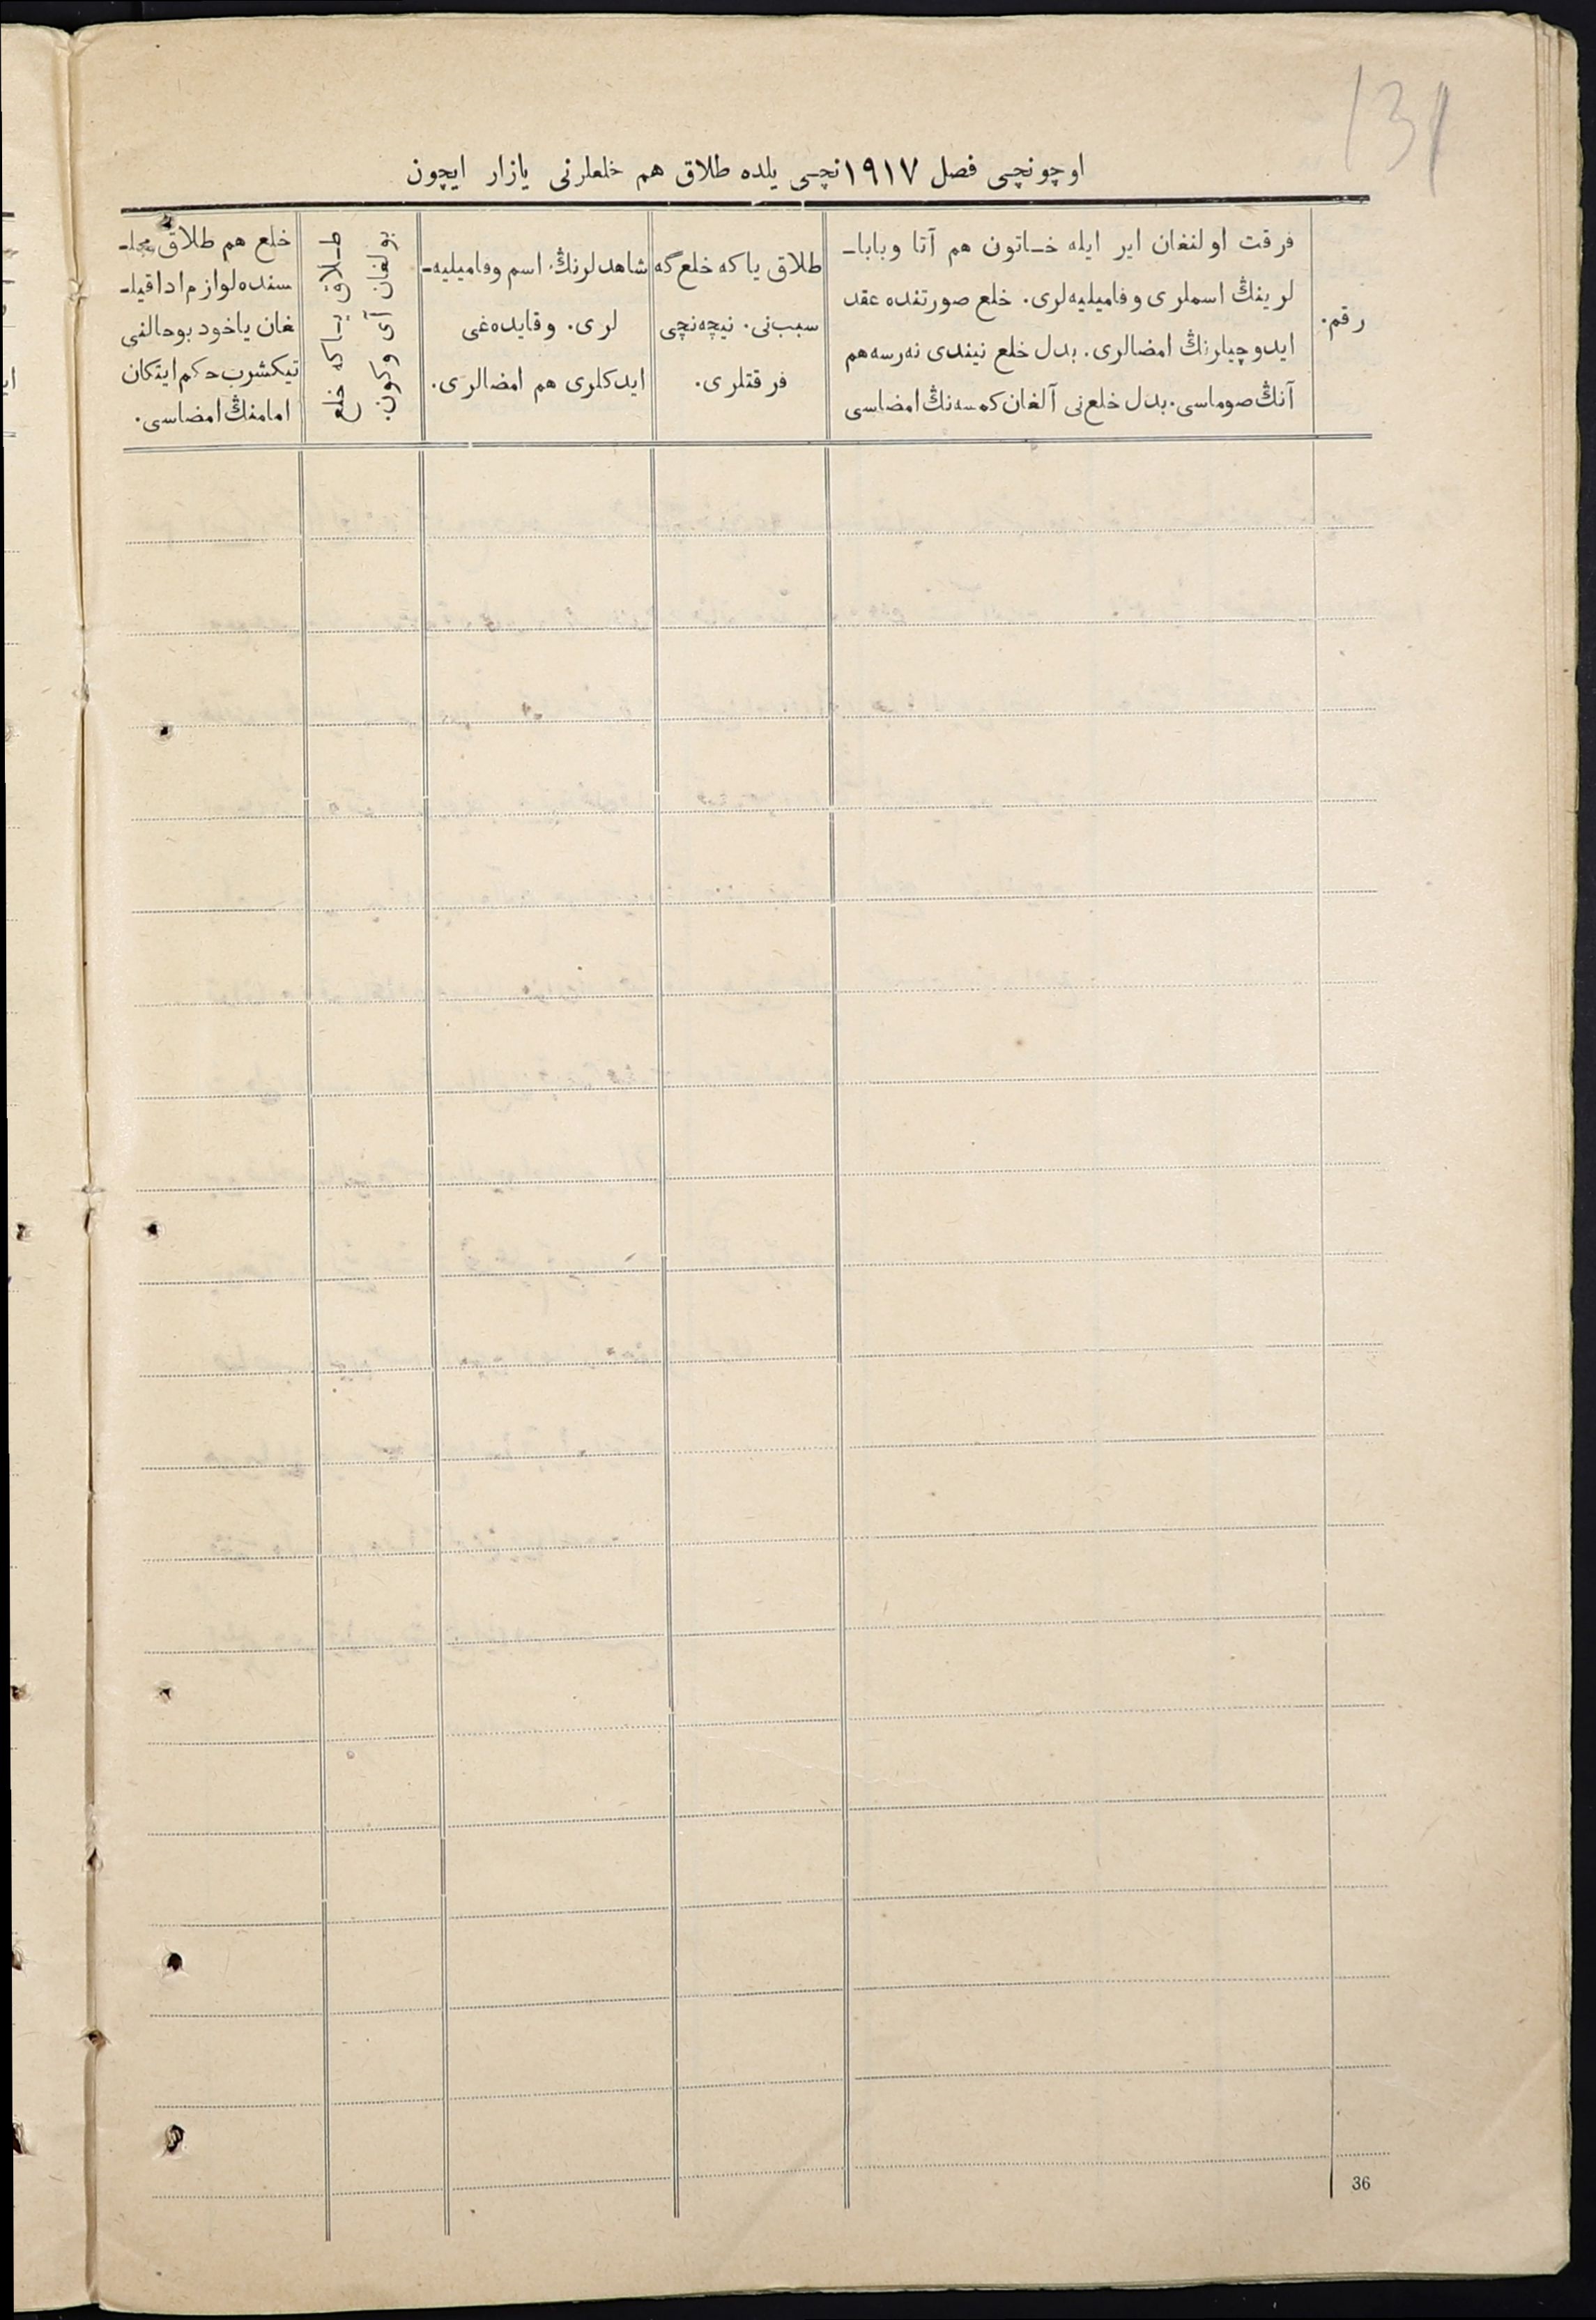 131
اوچونچی فصل ١٩١٧نچی یلده طلاق هم خلعلرنی یازار ایچون
رقم.
فرقت اولنغان ایر ایله خـاتون هم آتا وبابا-
لرینڭ اسملری وفامیلیه‌لری. خلع صورتنده عقد
ایدوچیلرنڭ امضالری. بدل خلع نیندی نه‌رسه هم
آنڭ صوماسی. بدل خلع‌نی آلغان کمسه‌نڭ امضاسی
طلاق یاکه خلع‌گه
سبب‌نی. نیچه‌نچی
فرقتلری.
شاهدلرنڭ اسم وفامیلیه-
لری. وقایده‌غی
ایدکلری هم امضالری.
طـلاق یـاکه خلع
بولغان آی وکون.
خلع هم طلاق مجلـ
سنده لوازم ادا قیلـ
غان یاخود بوحالنی
تیکشرب حکم ایتکان
امامنڭ امضاسی.
36